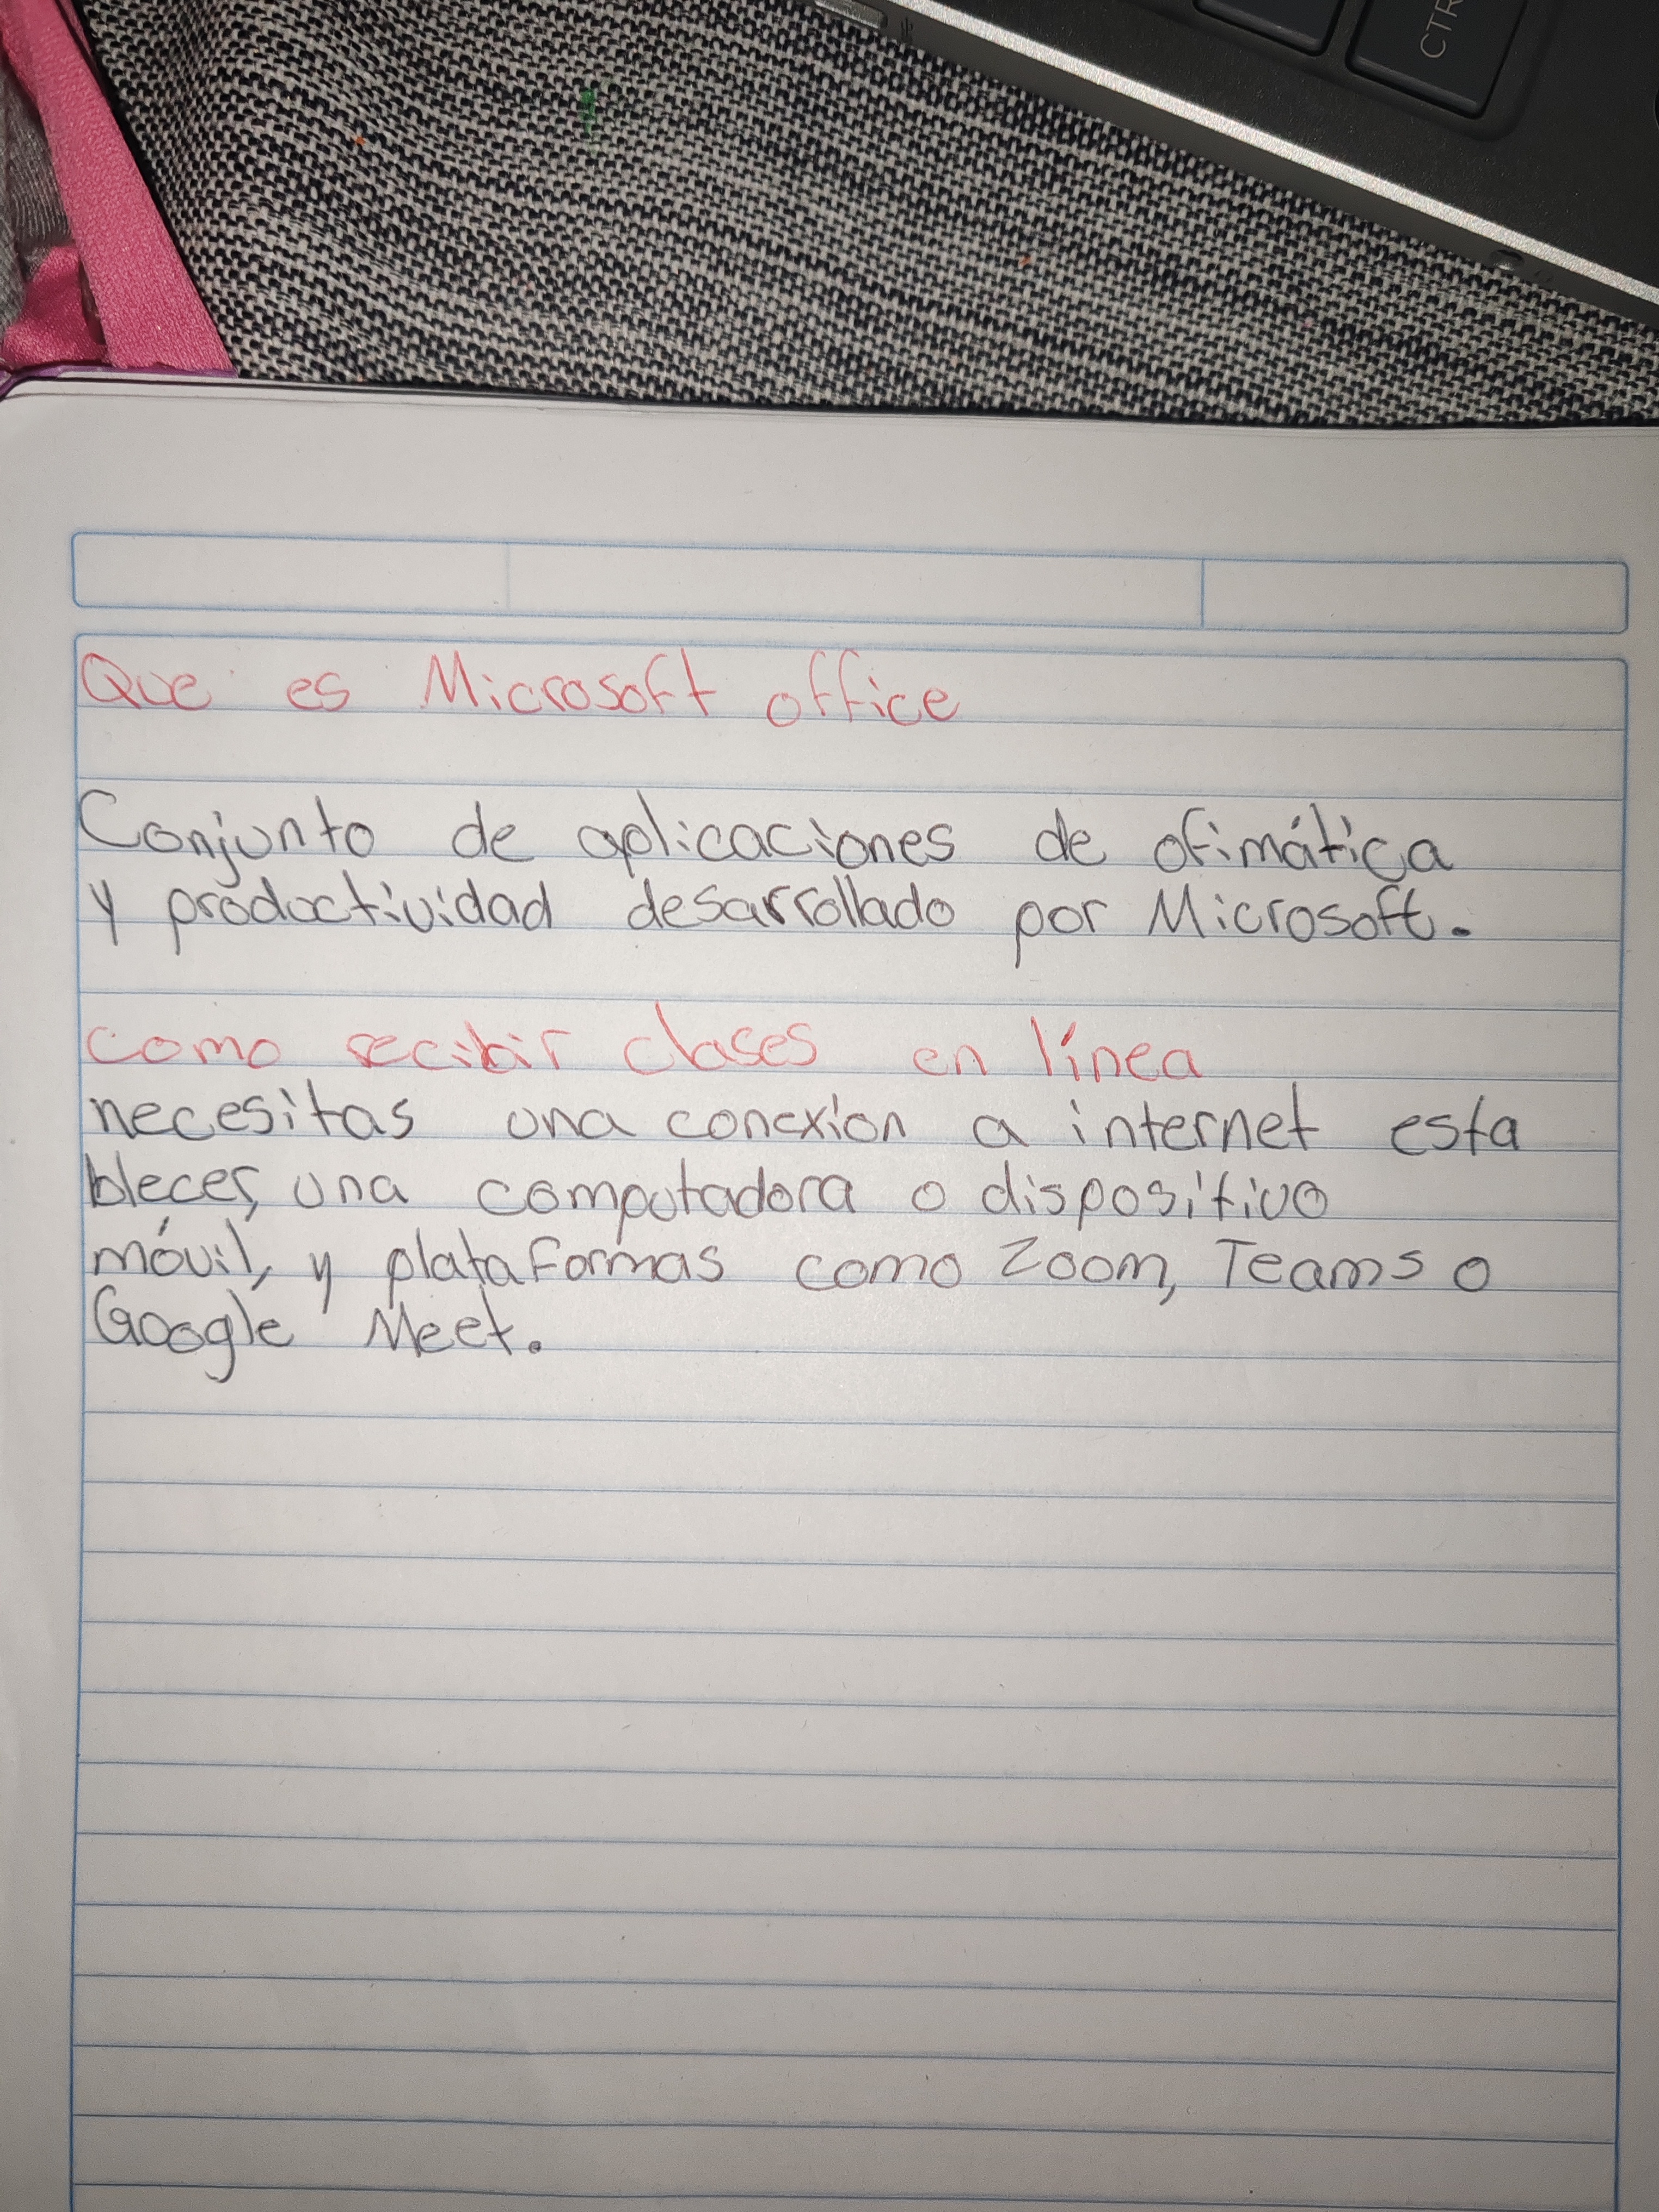 CTR
Que es Microsoft office
Conjunto de aplicaciones de ofimática
y productividad desarrollado por Microsoft.
como recibir clases en línea
necesitas una conexión a internet esta
blecer, una computadora o dispositivo
móvil, y plataformas como Zoom, Teams o
Google Meet.